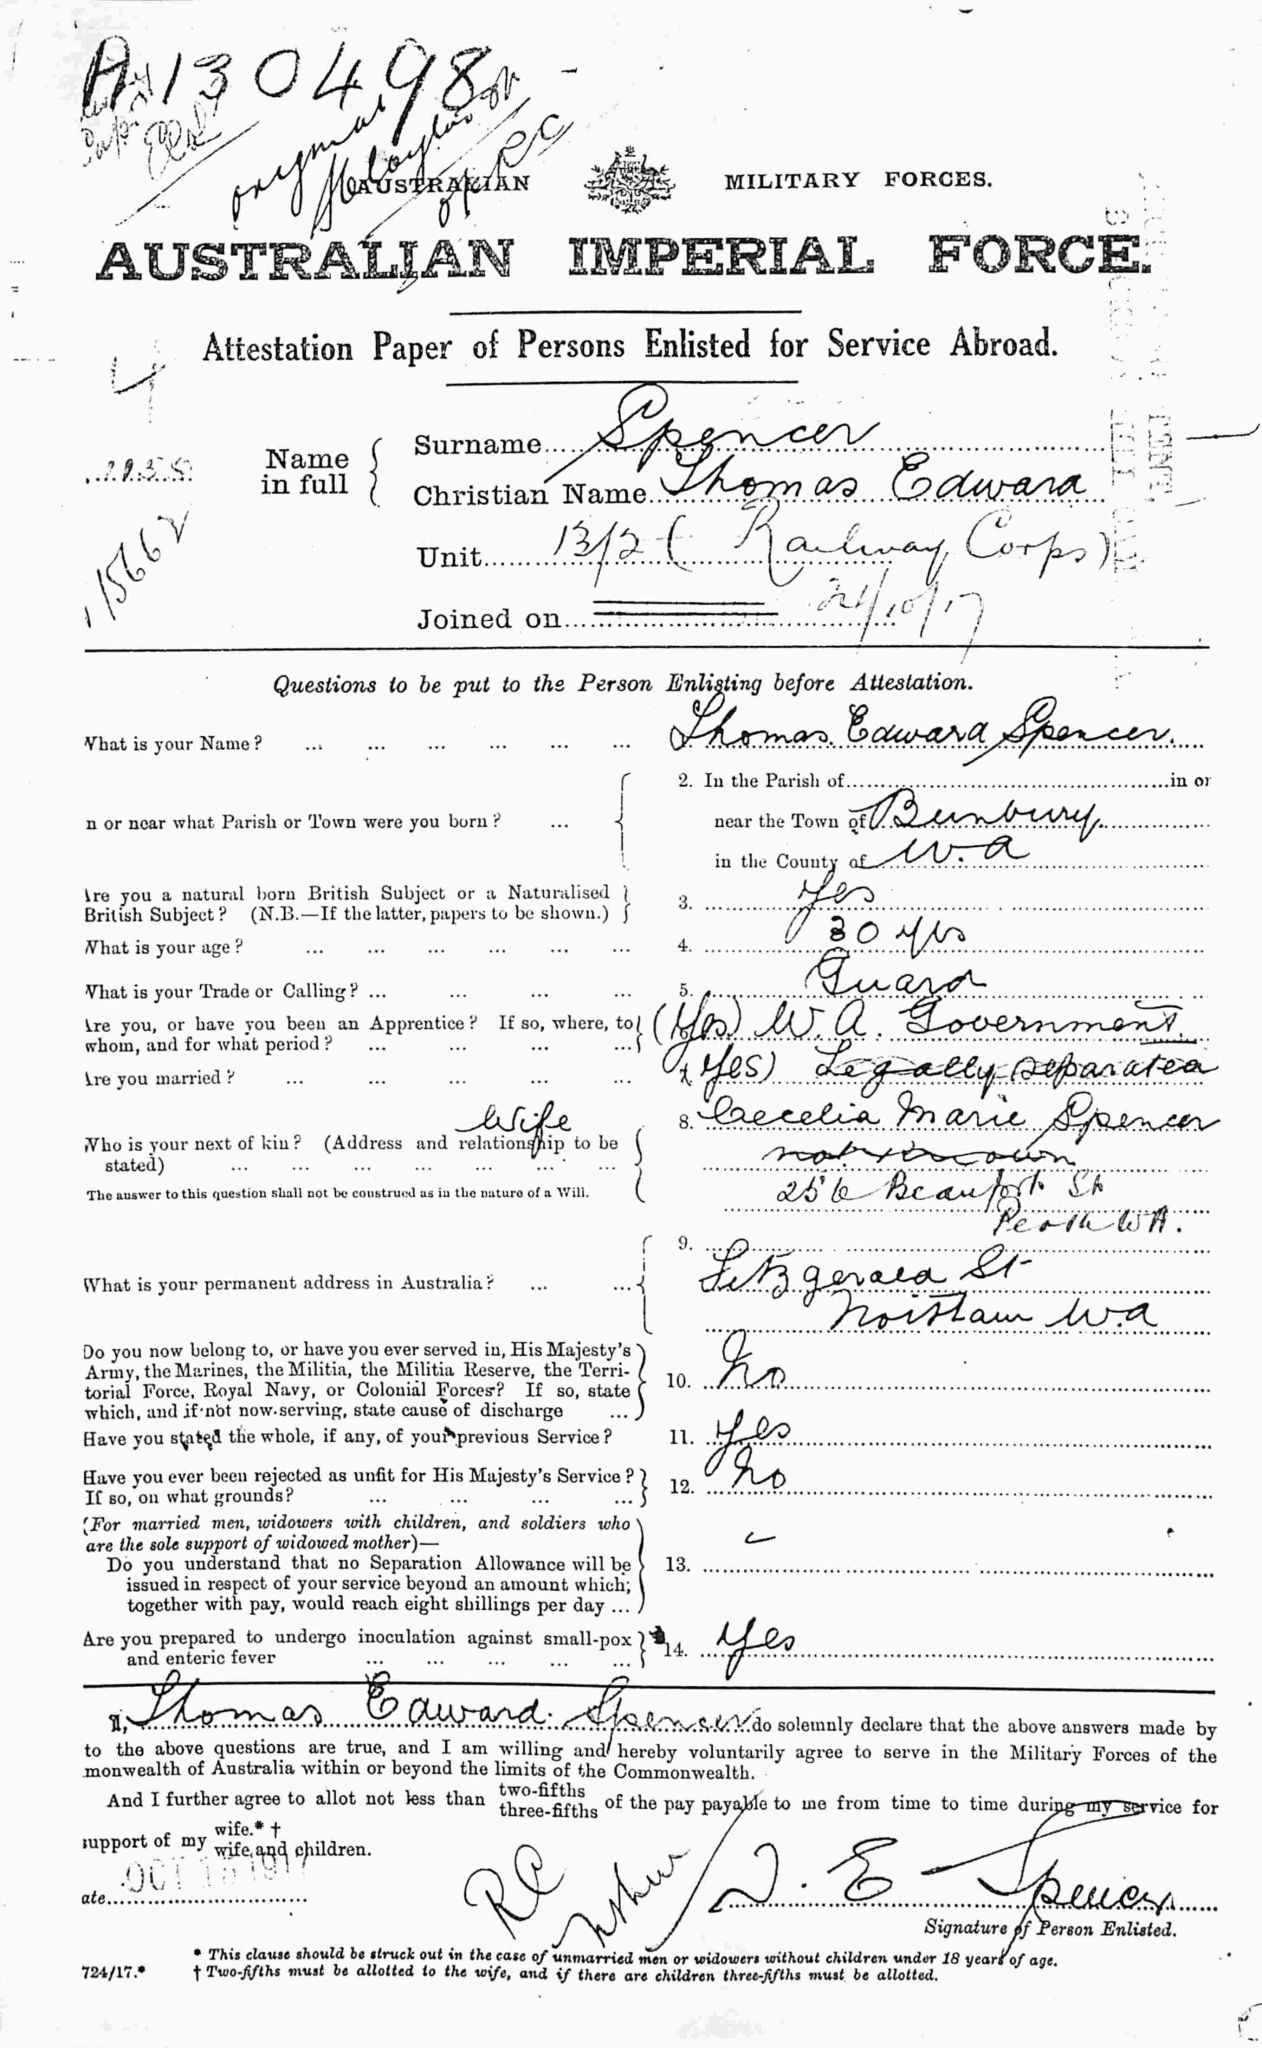 A130498
original
AUSTRALIAN MILITARY FORCES.
AUSTRALIAN IMPERIAL FORCE.
Attestation Paper of Persons Enlisted for Service Abroad.
Name in full
Surname Spencer
Christian Name Thomas Edward
15662
Unit 13/2 (Railway Corps)
Joined on 24/10/17
Questions to be put to the Person Enlisting before Attestation.
What is your Name? ... ... ... ... ... ... Thomas Edward Spencer
2. In the Parish of in or
n or near what Parish or Town were you born? ... near the Town of Bunbury
in the County of W.A
Are you a natural born British Subject or a Naturalised
British Subject? (N.B.—If the latter, papers to be shown.) 3. Yes
What is your age? ... ... ... ... ... ... 4. 30 yrs
What is your Trade or Calling? ... ... ... ... 5. Guard
Are you, or have you been an Apprentice? If so, where, to (Yes) W.A. Government
whom, and for what period? ... ... ... ...
Are you married? ... ... ... ... ... Yes) Legally separated
Wife
8. Cecelia Marie Spencer
Who is your next of kin? (Address and relationship to be
stated) ... ... ... ... ... ... ... not known
The answer to this question shall not be construed as in the nature of a Will.
256 Beaufort St
Perth W.A.
9.
What is your permanent address in Australia? ... ... Fitzgerald St
Northam W.A
Do you now belong to, or have you ever served in, His Majesty's
Army, the Marines, the Militia, the Militia Reserve, the Terri-
torial Force, Royal Navy, or Colonial Forces? If so, state 10. No
which, and if not now serving, state cause of discharge ...
Have you stated the whole, if any, of your previous Service? 11. Yes
Have you ever been rejected as unfit for His Majesty's Service?
If so, on what grounds? ... ... ... ... 12. No
(For married men, widowers with children, and soldiers who
are the sole support of widowed mother)—
Do you understand that no Separation Allowance will be 13.
issued in respect of your service beyond an amount which,
together with pay, would reach eight shillings per day ...
Are you prepared to undergo inoculation against small-pox 14. Yes
and enteric fever ... ... ... ... ...
I, Thomas Edward Spencer do solemnly declare that the above answers made by
to the above questions are true, and I am willing and hereby voluntarily agree to serve in the Military Forces of the
monwealth of Australia within or beyond the limits of the Commonwealth.
And I further agree to allot not less than two-fifths three-fifths of the pay payable to me from time to time during my service for
support of my wife.* † wife and children.
ate OCT 1917
RC
T. E Spencer
Signature of Person Enlisted.
* This clause should be struck out in the case of unmarried men or widowers without children under 18 years of age.
724/17.* † Two-fifths must be allotted to the wife, and if there are children three-fifths must be allotted.